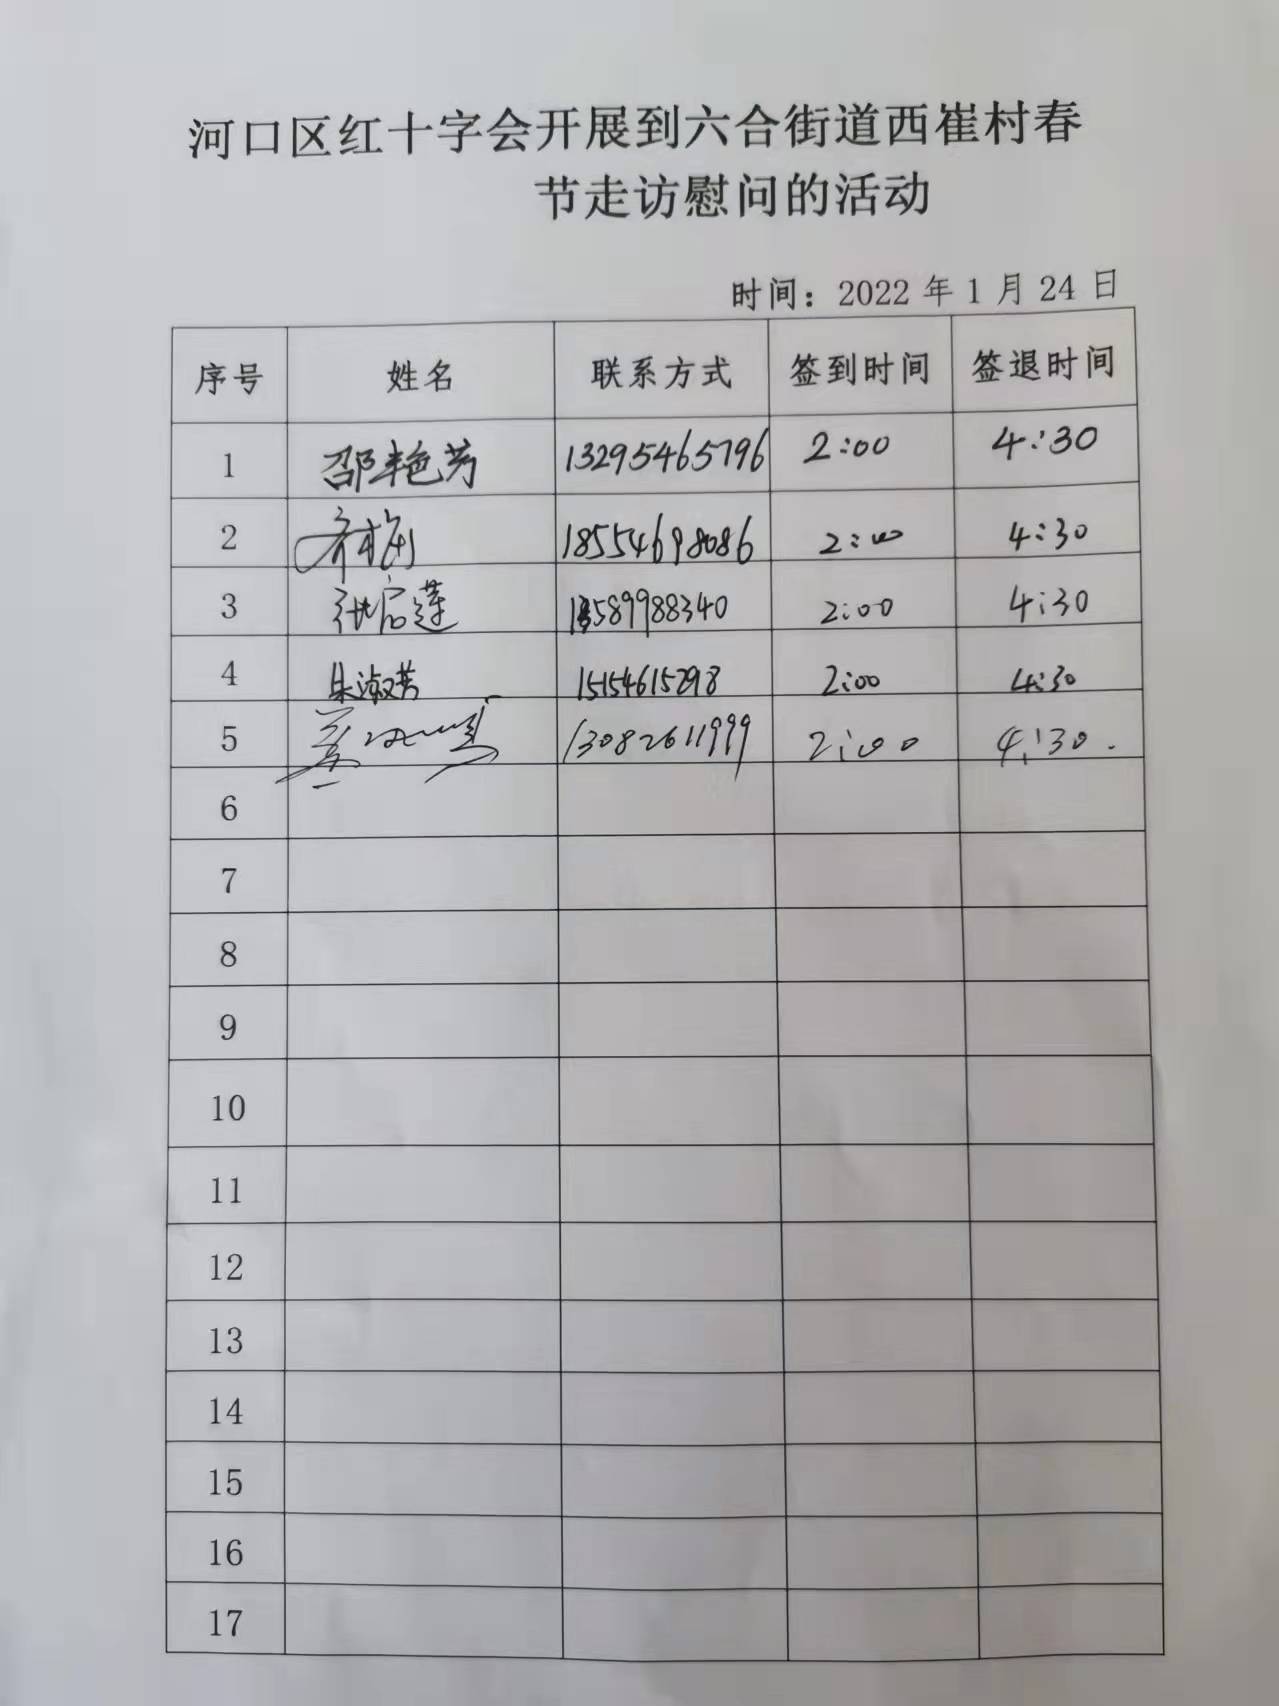 河口区红十字会开展到六合街道西崔村春
节走访慰问的活动
时间：2022年1月24日
序号 姓名 联系方式 签到时间 签退时间
1 邵艳芳 13295465796 2:00 4:30
2 齐梅 18554698086 2:00 4:30
3 张启莲 13589988340 2:00 4:30
4 朱淑芳 15154615298 2:00 4:30
5 13082611999 2:00 4:30.
6
7
8
9
10
11
12
13
14
15
16
17